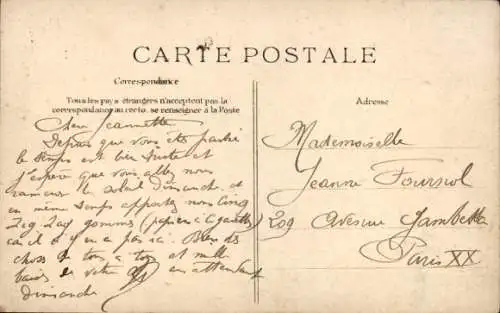 CARTE POSTALE
Correspondance
Tous les pays étrangers n'acceptent pas la
correspondance au recto, se renseigner à la Poste
Adresse
Chère Jeannette
Depuis que vous êtes partie
le temps est bien triste et
j'espère que vous allez nous
ramener le soleil dimanche et
en même temps apportez nous cinq
Zig Zag gommés (papier à cigarettes)
car il n'y en a pas ici. Bien des
choses de tous à tous et mille
baisers de votre en attendant
dimanche
Mademoiselle
Jeanne
209 Avenue Gambetta
Paris XX